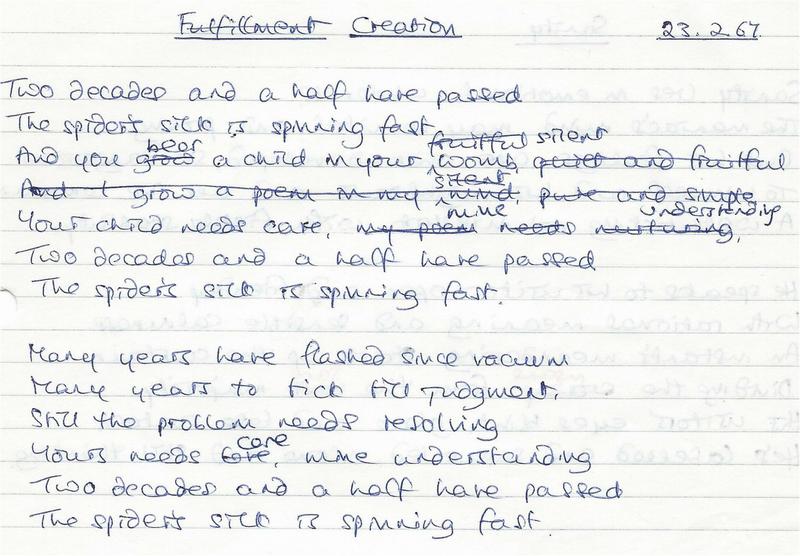 Fulfillment Creation 23.2.67.
Two decades and a half have passed
The spider's silk is spinning fast
And you grow bear a child in your fruitful silent womb, quiet and fruitful
And I grow a poem in my silent mind, pure and simple
Your child needs care, my poem mine needs nurturing, understanding
Two decades and a half have passed
The spider's silk is spinning fast.
Many years have flashed since vacuum
Many years to tick till judgment.
Still the problem needs resolving
Yours needs care, mine understanding
Two decades and a half have passed
The spider's silk is spinning fast.